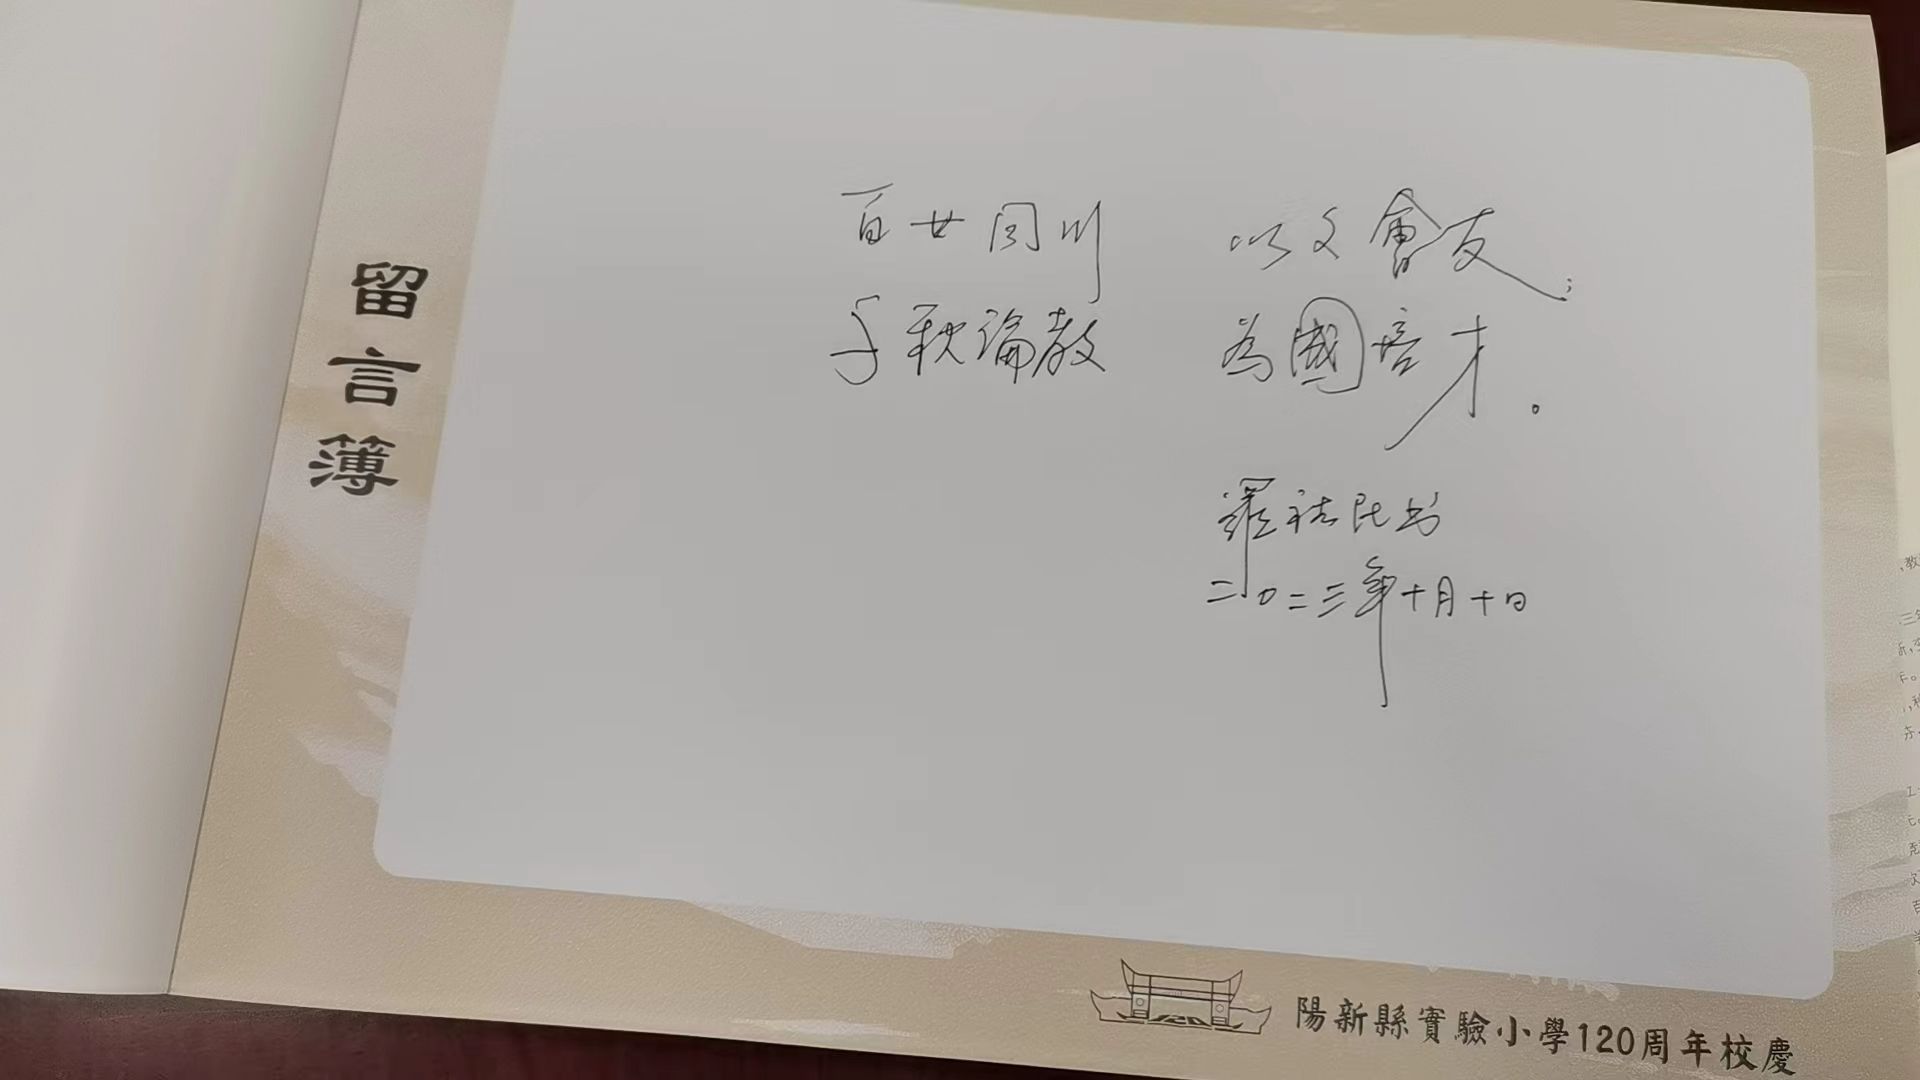 留言簿
百廿同川 以文會友；
千秋論教 為國培才。
羅祜民书
二〇二三年十月十日
陽新縣實驗小學120周年校慶